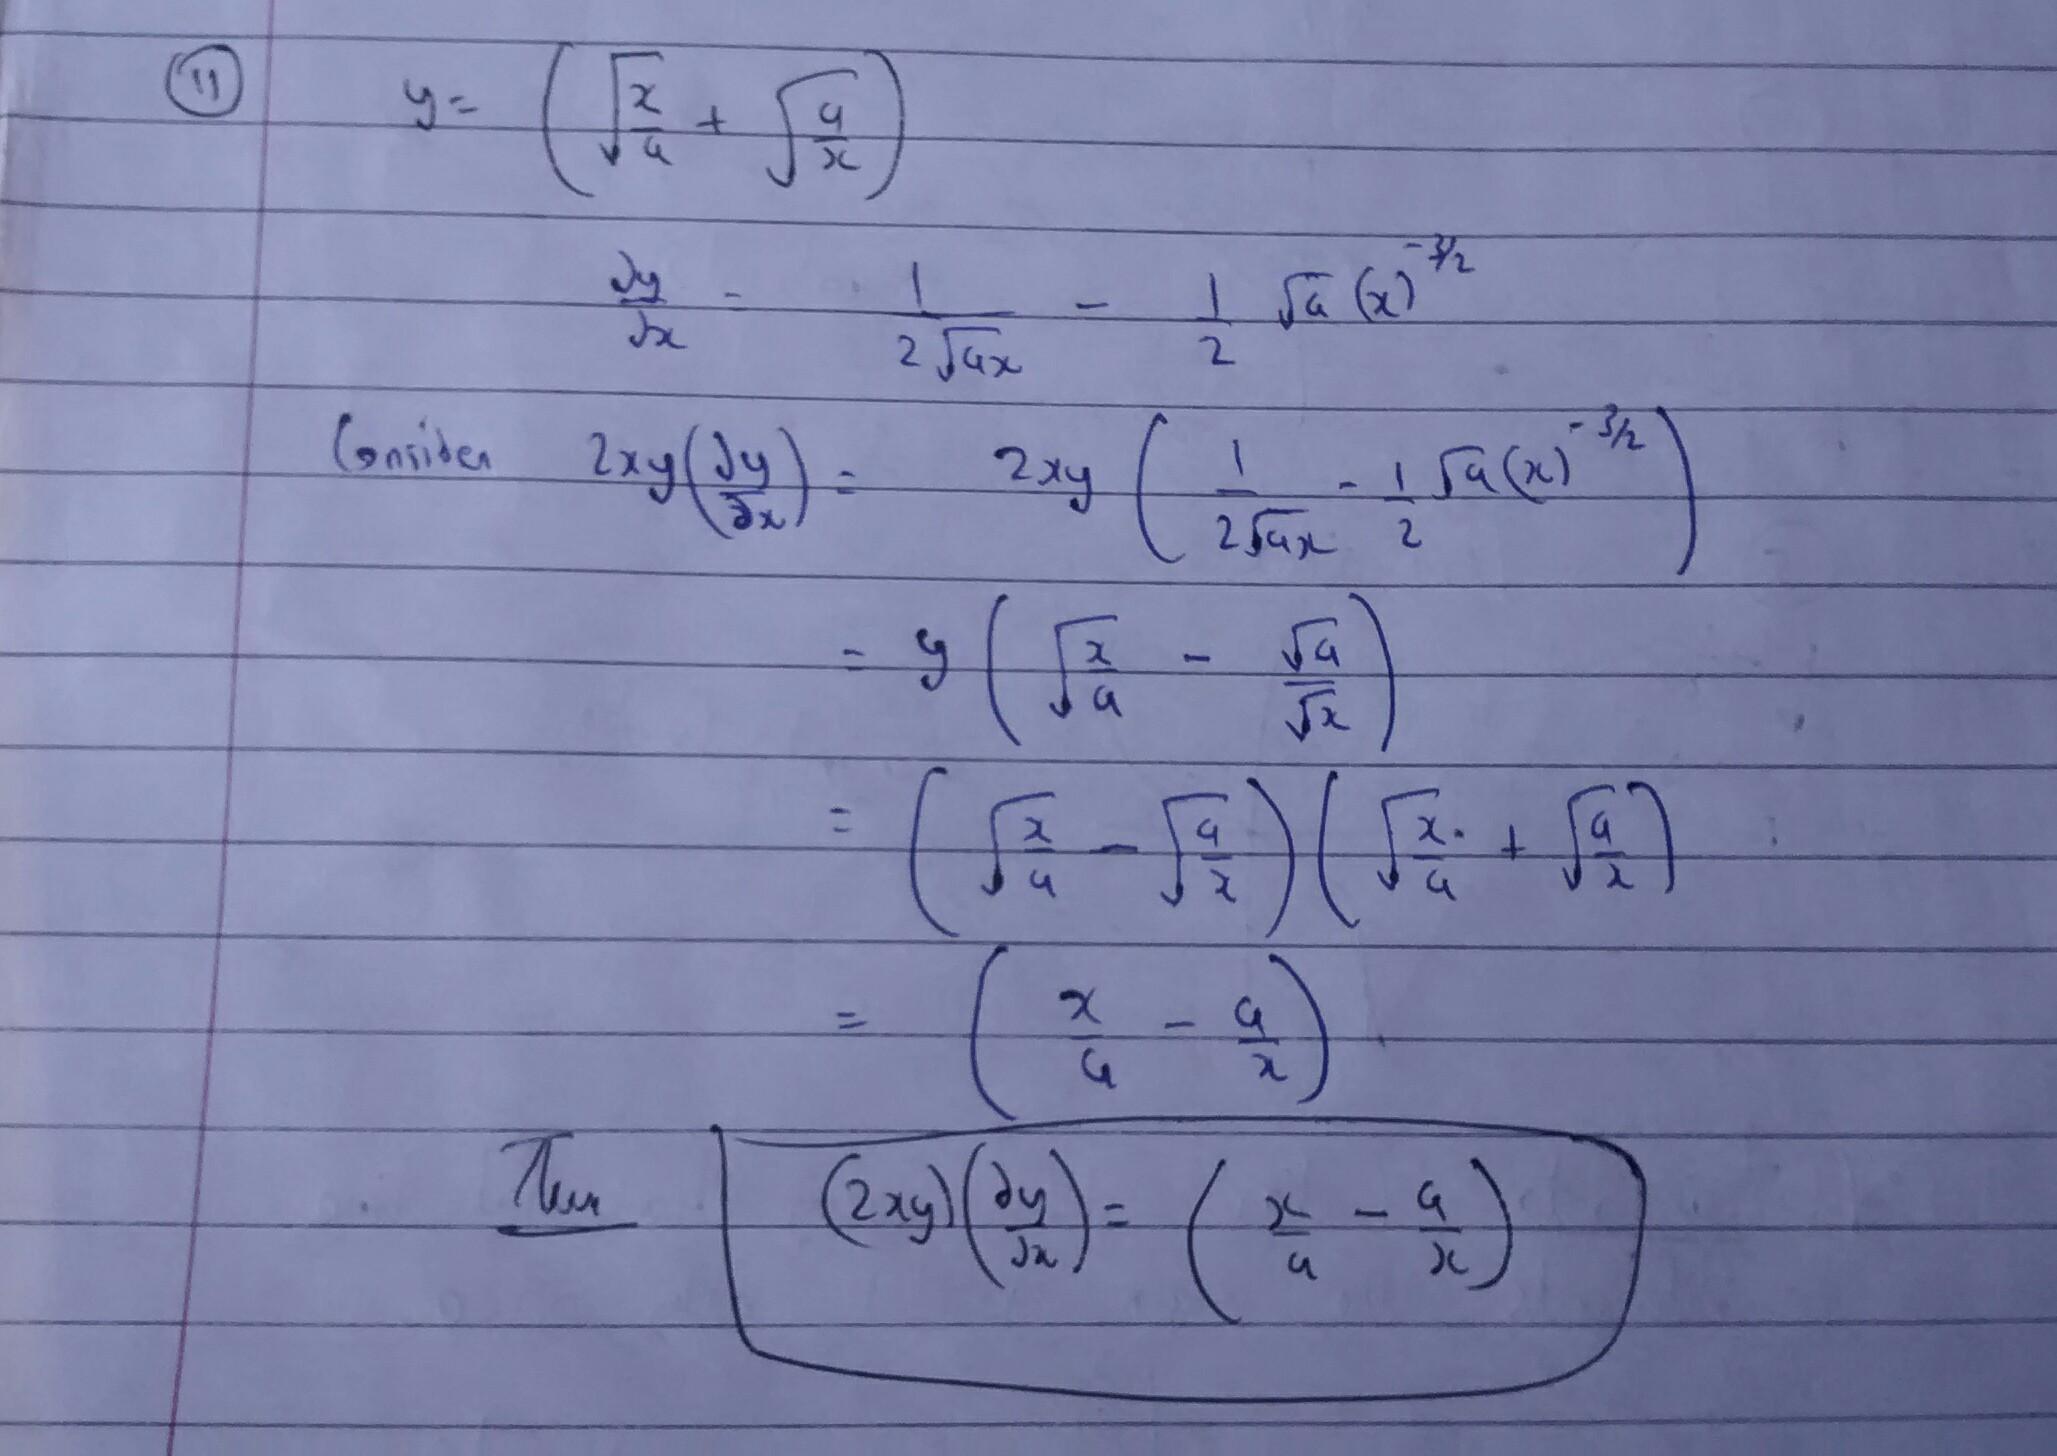 11 y = (√(x/a) + √(a/x))
dy/dx = 1/(2√(ax)) - 1/2 √a (x)^(-3/2)
Consider 2xy(dy/dx) = 2xy (1/(2√(ax)) - 1/2 √a (x)^(-3/2))
= y (√(x/a) - √a/√x)
= (√(x/a) - √(a/x)) (√(x/a) + √(a/x))
= (x/a - a/x)
Then (2xy)(dy/dx) = (x/a - a/x)